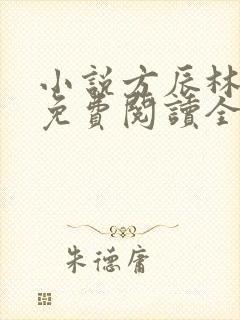 小說方辰林
免費閱讀全
朱德庸